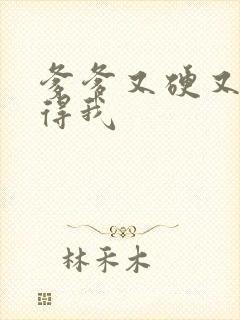 爹爹又硬又
得我
林禾木